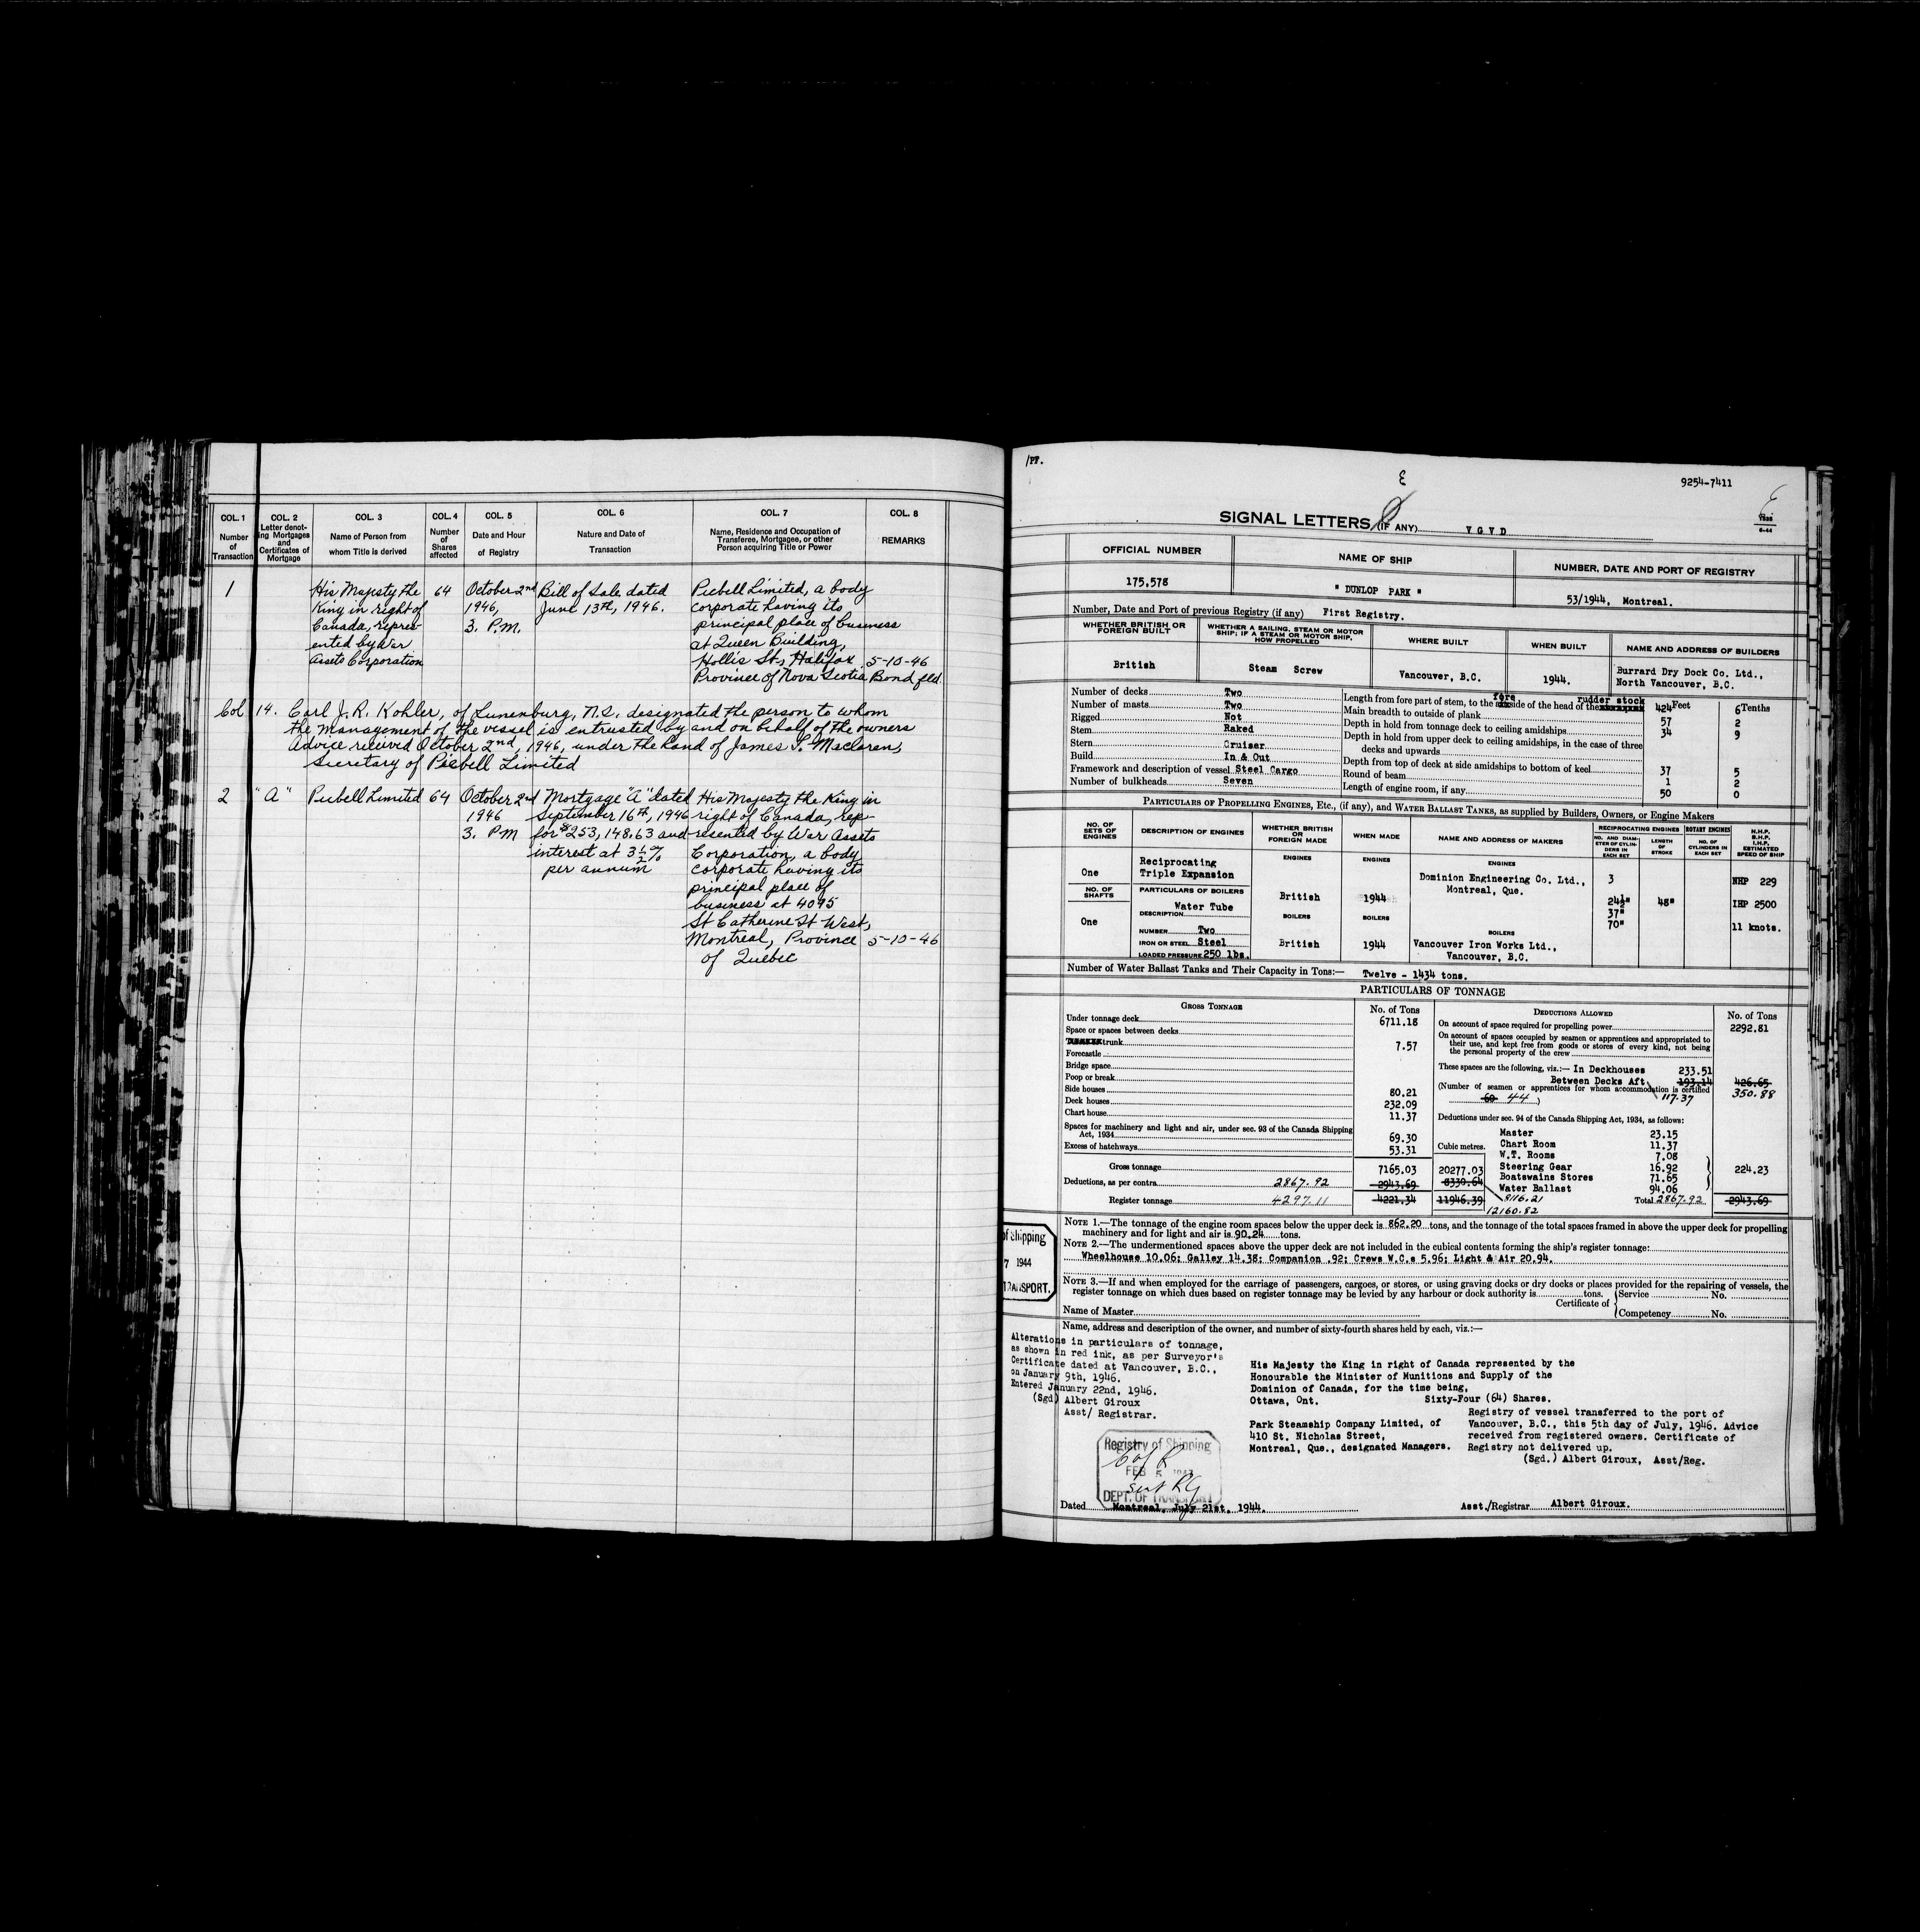 COL. 1 Number of Transaction
COL. 2 Letter denoting Mortgages and Certificates of Mortgage
COL. 3 Name of Person from whom Title is derived
COL. 4 Number of Shares affected
COL. 5 Date and Hour of Registry
COL. 6 Nature and Date of Transaction
COL. 7 Name, Residence and Occupation of Transferee, Mortgagee, or other Person acquiring Title or Power
COL. 8 REMARKS
1 His Majesty the 64 October 2nd Bill of Sale dated Piebell Limited, a body
King in right of 1946, June 13th, 1946. corporate having its
Canada, repres- 3. P.M. principal place of business
ented by War at Queen Building,
Assets Corporation Hollis St., Halifax 5-10-46
Province of Nova Scotia Bond fld.
Col 14. Carl J. R. Kohler, of Lunenburg, N.S. designated the person to whom
the management of the vessel is entrusted by and on behalf of the owners
Advice received October 2nd, 1946, under the hand of James S. Maclaren,
Secretary of Piebell Limited
2 "A" Piebell Limited 64 October 2nd Mortgage "A" dated His Majesty the King in
1946 September 16th, 1946 right of Canada, rep-
3. PM for $253,148.63 and resented by War Assets
interest at 3 1/2 % Corporation, a body
per annum corporate having its
principal place of
business at 4095
St Catherine St West,
Montreal, Province 5-10-46
of Quebec
/PP.
9254-7411
SIGNAL LETTERS (IF ANY) V G V D
OFFICIAL NUMBER NAME OF SHIP NUMBER, DATE AND PORT OF REGISTRY
175,578 " DUNLOP PARK " 53/1944, Montreal.
Number, Date and Port of previous Registry (if any) First Registry.
WHETHER BRITISH OR FOREIGN BUILT
WHETHER A SAILING, STEAM OR MOTOR SHIP; IF A STEAM OR MOTOR SHIP, HOW PROPELLED
WHERE BUILT
WHEN BUILT
NAME AND ADDRESS OF BUILDERS
British Steam Screw Vancouver, B.C. 1944. Burrard Dry Dock Co. Ltd.,
North Vancouver, B.C.
Number of decks Two
Number of masts Two
Rigged Not
Stem Raked
Stern Cruiser
Build In & Out
Framework and description of vessel Steel Cargo
Number of bulkheads Seven
Length from fore part of stem, to the fore side of the head of the rudder stock 424 Feet 6 Tenths
Main breadth to outside of plank 57 2
Depth in hold from tonnage deck to ceiling amidships 34 9
Depth in hold from upper deck to ceiling amidships, in the case of three
decks and upwards
Depth from top of deck at side amidships to bottom of keel 37 5
Round of beam 1 2
Length of engine room, if any 50 0
PARTICULARS OF PROPELLING ENGINES, ETC., (if any), and WATER BALLAST TANKS, as supplied by Builders, Owners, or Engine Makers
NO. OF SETS OF ENGINES
DESCRIPTION OF ENGINES
WHETHER BRITISH OR FOREIGN MADE
WHEN MADE
NAME AND ADDRESS OF MAKERS
RECIPROCATING ENGINES
NO. AND DIAMETER OF CYLINDERS IN EACH SET
LENGTH OF STROKE
ROTARY ENGINES
NO. OF CYLINDERS IN EACH SET
N.H.P. B.H.P. I.H.P. ESTIMATED SPEED OF SHIP
ENGINES ENGINES ENGINES
One Reciprocating
Triple Expansion
Dominion Engineering Co. Ltd., 3 NHP 229
Montreal, Que.
NO. OF SHAFTS PARTICULARS OF BOILERS British 1944 24½" 48" IHP 2500
37"
70" 11 knots.
One DESCRIPTION Water Tube BOILERS BOILERS BOILERS
NUMBER Two
IRON OR STEEL Steel British 1944 Vancouver Iron Works Ltd.,
LOADED PRESSURE 250 lbs. Vancouver, B.C.
Number of Water Ballast Tanks and Their Capacity in Tons:— Twelve - 1434 tons.
PARTICULARS OF TONNAGE
GROSS TONNAGE No. of Tons
Under tonnage deck 6711.18
Space or spaces between decks
trunk 7.57
Forecastle
Bridge space
Poop or break
Side houses 80.21
Deck houses 232.09
Chart house 11.37
Spaces for machinery and light and air, under sec. 93 of the Canada Shipping
Act, 1934 69.30
Excess of hatchways 53.31
Cubic metres.
Gross tonnage 7165.03 20277.03
Deductions, as per contra 2867.92 2943.69 8330.64
Register tonnage 4297.11 4221.34 11946.39
8116.21
12160.82
DEDUCTIONS ALLOWED No. of Tons
On account of space required for propelling power 2292.81
On account of spaces occupied by seamen or apprentices and appropriated to
their use, and kept free from goods or stores of every kind, not being
the personal property of the crew
These spaces are the following, viz.:— In Deckhouses 233.51
Between Decks Aft 193.14 426.65
(Number of seamen or apprentices for whom accommodation is certified
60 44) 117.37 350.88
Deductions under sec. 94 of the Canada Shipping Act, 1934, as follows:
Master 23.15
Chart Room 11.37
W.T. Rooms 7.08
Steering Gear 16.92 224.23
Boatswains Stores 71.65
Water Ballast 94.06
Total 2867.92 2943.69
NOTE 1.—The tonnage of the engine room spaces below the upper deck is 862.20 tons, and the tonnage of the total spaces framed in above the upper deck for propelling
machinery and for light and air is 90.24 tons.
NOTE 2.—The undermentioned spaces above the upper deck are not included in the cubical contents forming the ship's register tonnage:
Wheelhouse 10.06; Galley 14.38; Companion .92; Crews W.C.s 5.96; Light & Air 20.94.
NOTE 3.—If and when employed for the carriage of passengers, cargoes, or stores, or using graving docks or dry docks or places provided for the repairing of vessels, the
register tonnage on which dues based on register tonnage may be levied by any harbour or dock authority is tons.
Name of Master Certificate of {Service No.
Competency No.
of Shipping
7 1944
TRANSPORT.
Name, address and description of the owner, and number of sixty-fourth shares held by each, viz.:—
Alterations in particulars of tonnage,
as shown in red ink, as per Surveyor's
Certificate dated at Vancouver, B.C.,
on January 9th, 1946.
Entered January 22nd, 1946.
(Sgd) Albert Giroux
Asst/ Registrar.
His Majesty the King in right of Canada represented by the
Honourable the Minister of Munitions and Supply of the
Dominion of Canada, for the time being,
Ottawa, Ont. Sixty-Four (64) Shares.
Park Steamship Company Limited, of
410 St. Nicholas Street,
Montreal, Que., designated Managers.
Registry of vessel transferred to the port of
Vancouver, B.C., this 5th day of July, 1946. Advice
received from registered owners. Certificate of
Registry not delivered up.
(Sgd.) Albert Giroux, Asst/Reg.
Registry of Shipping
C of R
FEB 5 1947
DEPT. OF TRANSPORT
Dated Montreal, July 21st, 1944.
Asst./Registrar Albert Giroux.